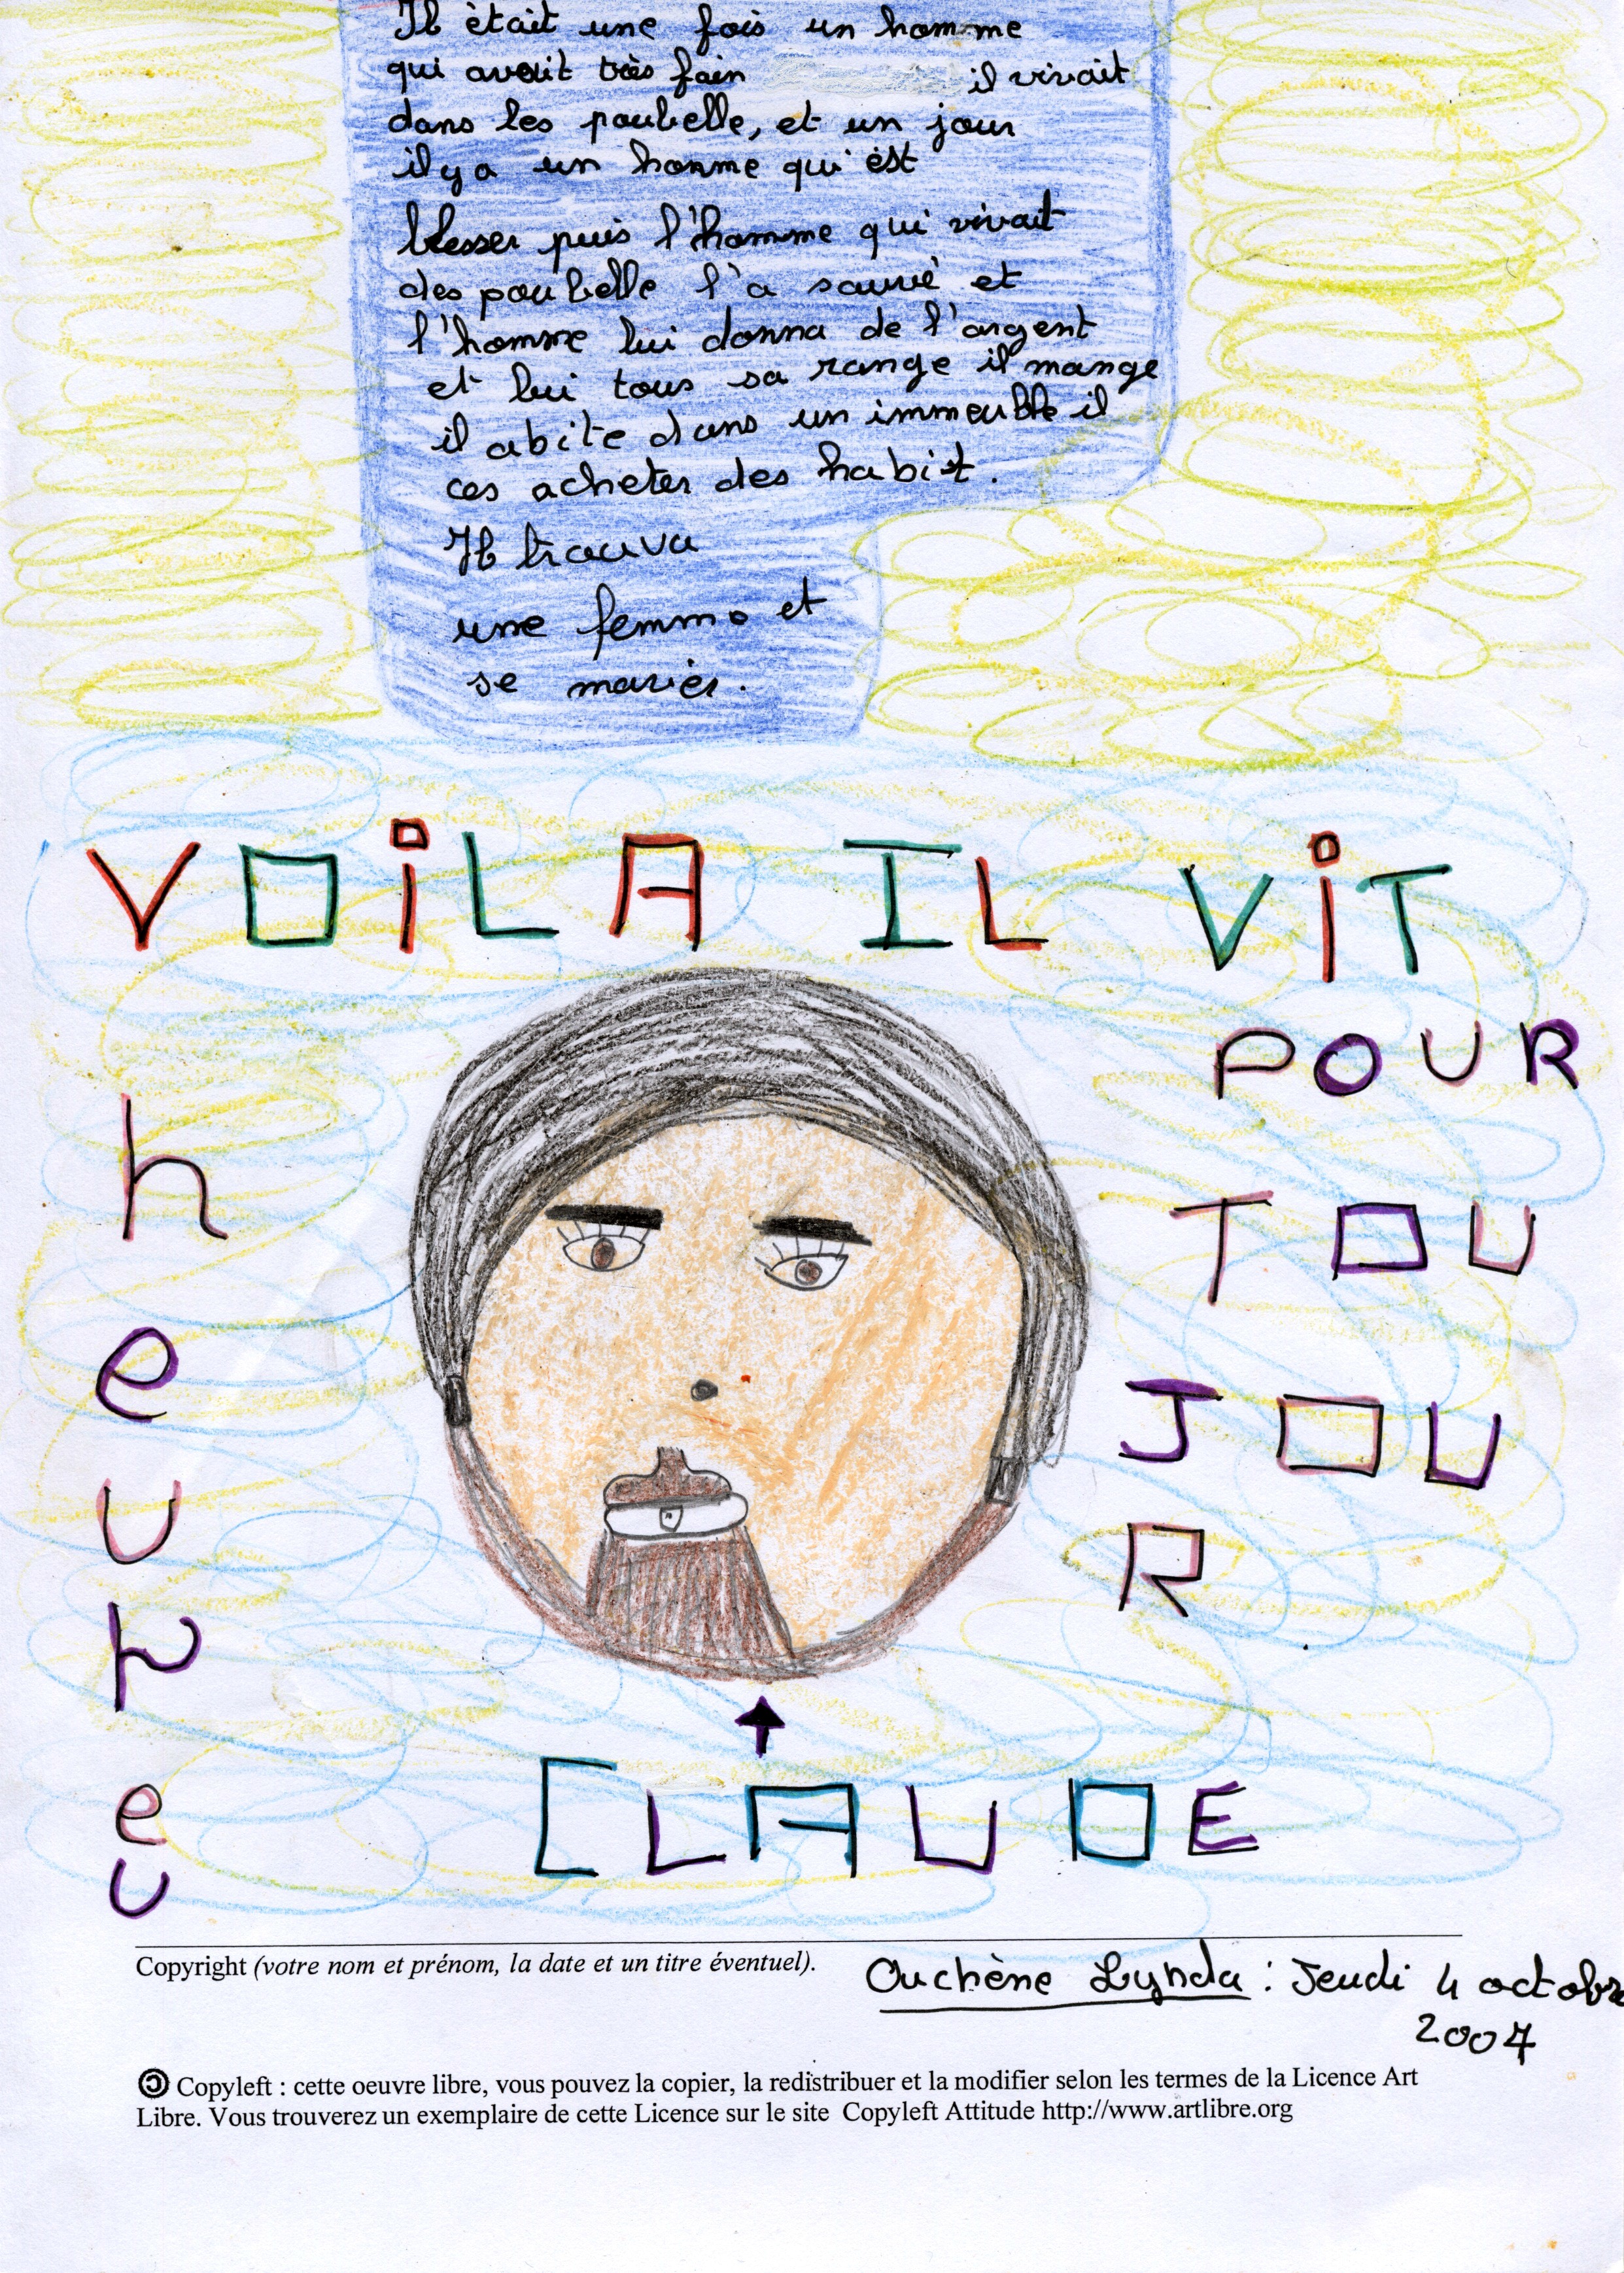 Il était une fois un homme
qui avait très fain il vivait
dans les poubelle, et un jour
il y a un homme qui est
blesser puis l'homme qui vivait
des poubelle l'a sauvé et
l'homme lui donna de l'argent
et lui tous sa range il mange
il abite dans un immeuble il
ces acheter des habit.
Il trouva
une femme et
se marier.
VOiLA IL ViT
POUR
TOU
JOU
R
h
e
u
r
e
u
CLAUDE
Copyright (votre nom et prénom, la date et un titre éventuel).
Ouchène Lynda : Jeudi 4 octobre
2007
Copyleft : cette oeuvre libre, vous pouvez la copier, la redistribuer et la modifier selon les termes de la Licence Art
Libre. Vous trouverez un exemplaire de cette Licence sur le site Copyleft Attitude http://www.artlibre.org